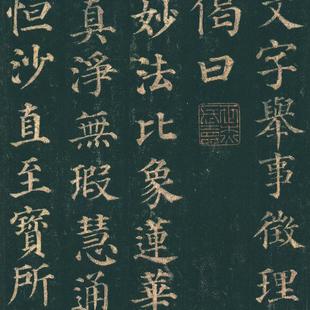 文字舉事徵理
偈曰
妙法比象蓮華
真淨無瑕慧通
恒沙直至寶所